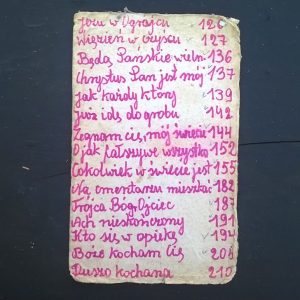 Jezu w Ogrojcu 126
Więzień w Czyscu 127
Będą Pańskie wielm 136
Chrystus Pan jest mój 137
Jak każdy który 139
Już idę do grobu 142
Żegnam cię, mój świecie 144
O jak fałszywe wszystko 152
Cokolwiek w świecie jest 155
Na cmentarzu mieszkać 182
Trójca Bóg Ojciec 187
Ach nieskończony 191
Kto się w opiekę 194
Boże kocham Cię 208
Duszo kochana 210